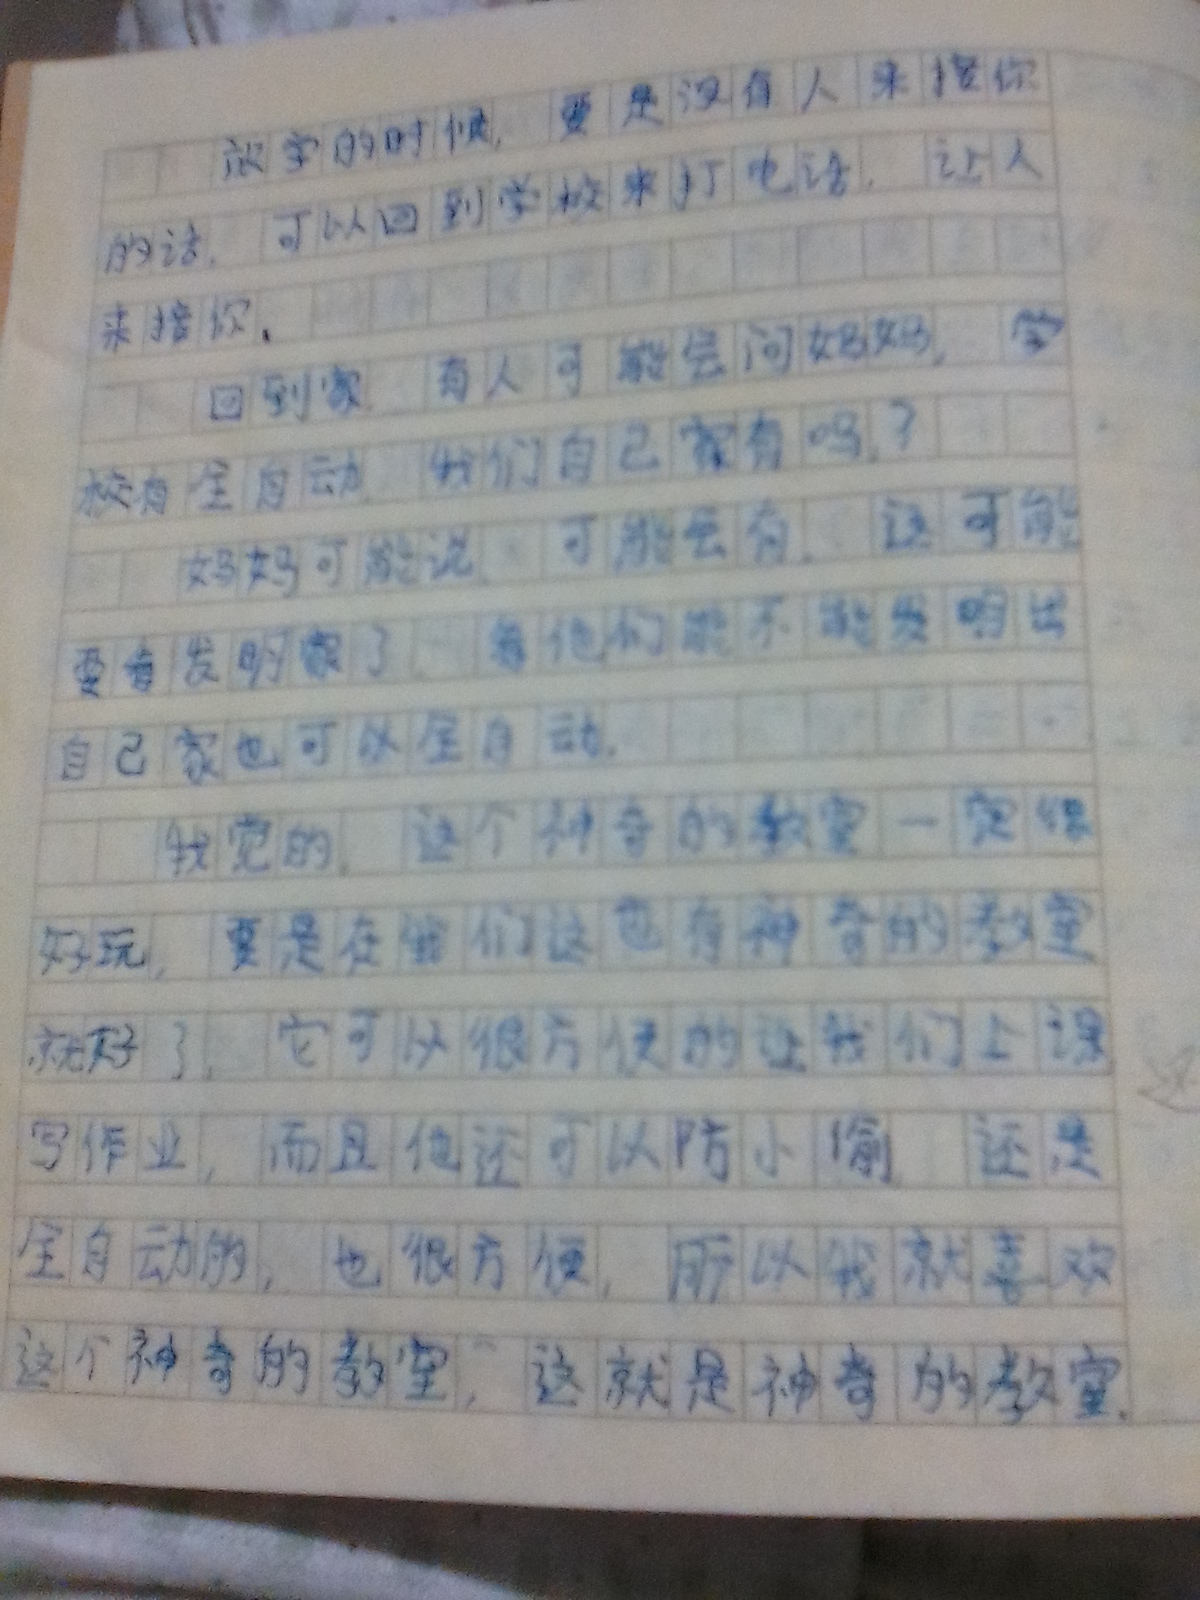 放学的时候，要是没有人来接你
的话，可以回到学校来打电话，让人
来接你。
回到家，有人可能会问妈妈，学
校有全自动，我们自己家有吗？
妈妈可能说，可能会有，这可能
要看发明家了，看他们能不能发明出
自己家也可以全自动。
我觉的，这个神奇的教室一定很
好玩，要是在我们这也有神奇的教室
就好了，它可以很方便的让我们上课
写作业，而且他还可以防小偷，还是
全自动的，也很方便，所以我就喜欢
这个神奇的教室，这就是神奇的教室。